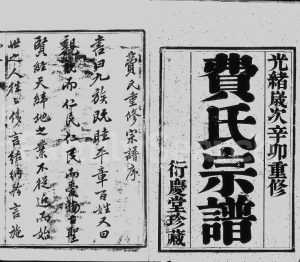 光緒歲次辛卯重修
費氏宗譜
衍慶堂珍藏
費氏重修宗譜序
書曰九族既睦平章百姓又曰
親親而仁民仁民而愛物古聖
賢經天緯地之業不從近始
世之人往往侈言維納務言施